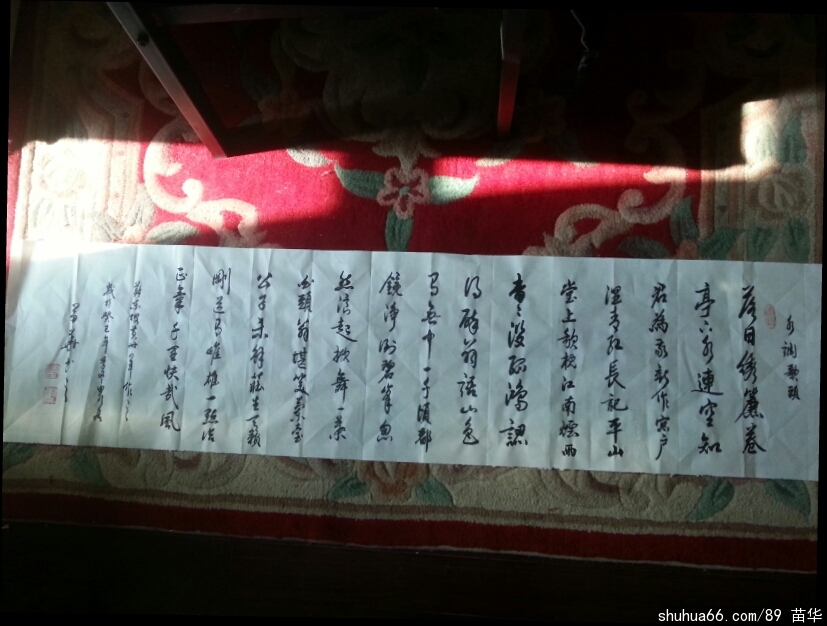 水調歌頭
落日绣簾卷
亭下水連空知
君為我新作窗户
湿青红長記平山
堂上欹枕江南煙雨
杳杳没孤鴻認
得醉翁語山色
有無中一千頃都
鏡淨倒碧峯忽
然浪起掀舞一葉
白頭翁堪笑蘭台
公子未解莊生天籟
剛道有雌雄一點浩
正氣千里快哉風
癸巳年
苗華
shuhua66.com/89 苗华